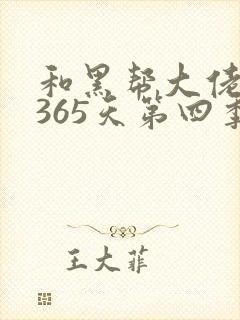 和黑帮大佬
365天第四季
王大菲